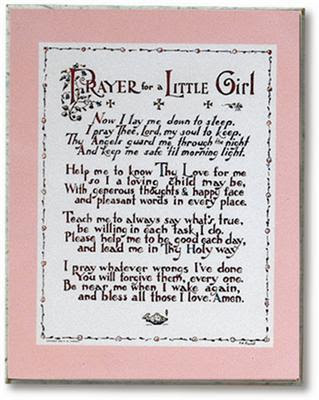 PRAYER for a LITTLE GIRL
Now I lay me down to sleep.
I pray Thee, Lord, my soul to keep.
Thy Angels guard me through the night
And keep me safe 'til morning light.
Help me to know Thy Love for me
so I a loving child may be,
With generous thoughts & happy face
and pleasant words in every place.
Teach me to always say what's true,
be willing in each task I do.
Please help me to be good each day,
and lead me in Thy Holy way.
I pray whatever wrongs I've done
You will forgive them, every one.
Be near me when I wake again,
and bless all those I love. Amen.